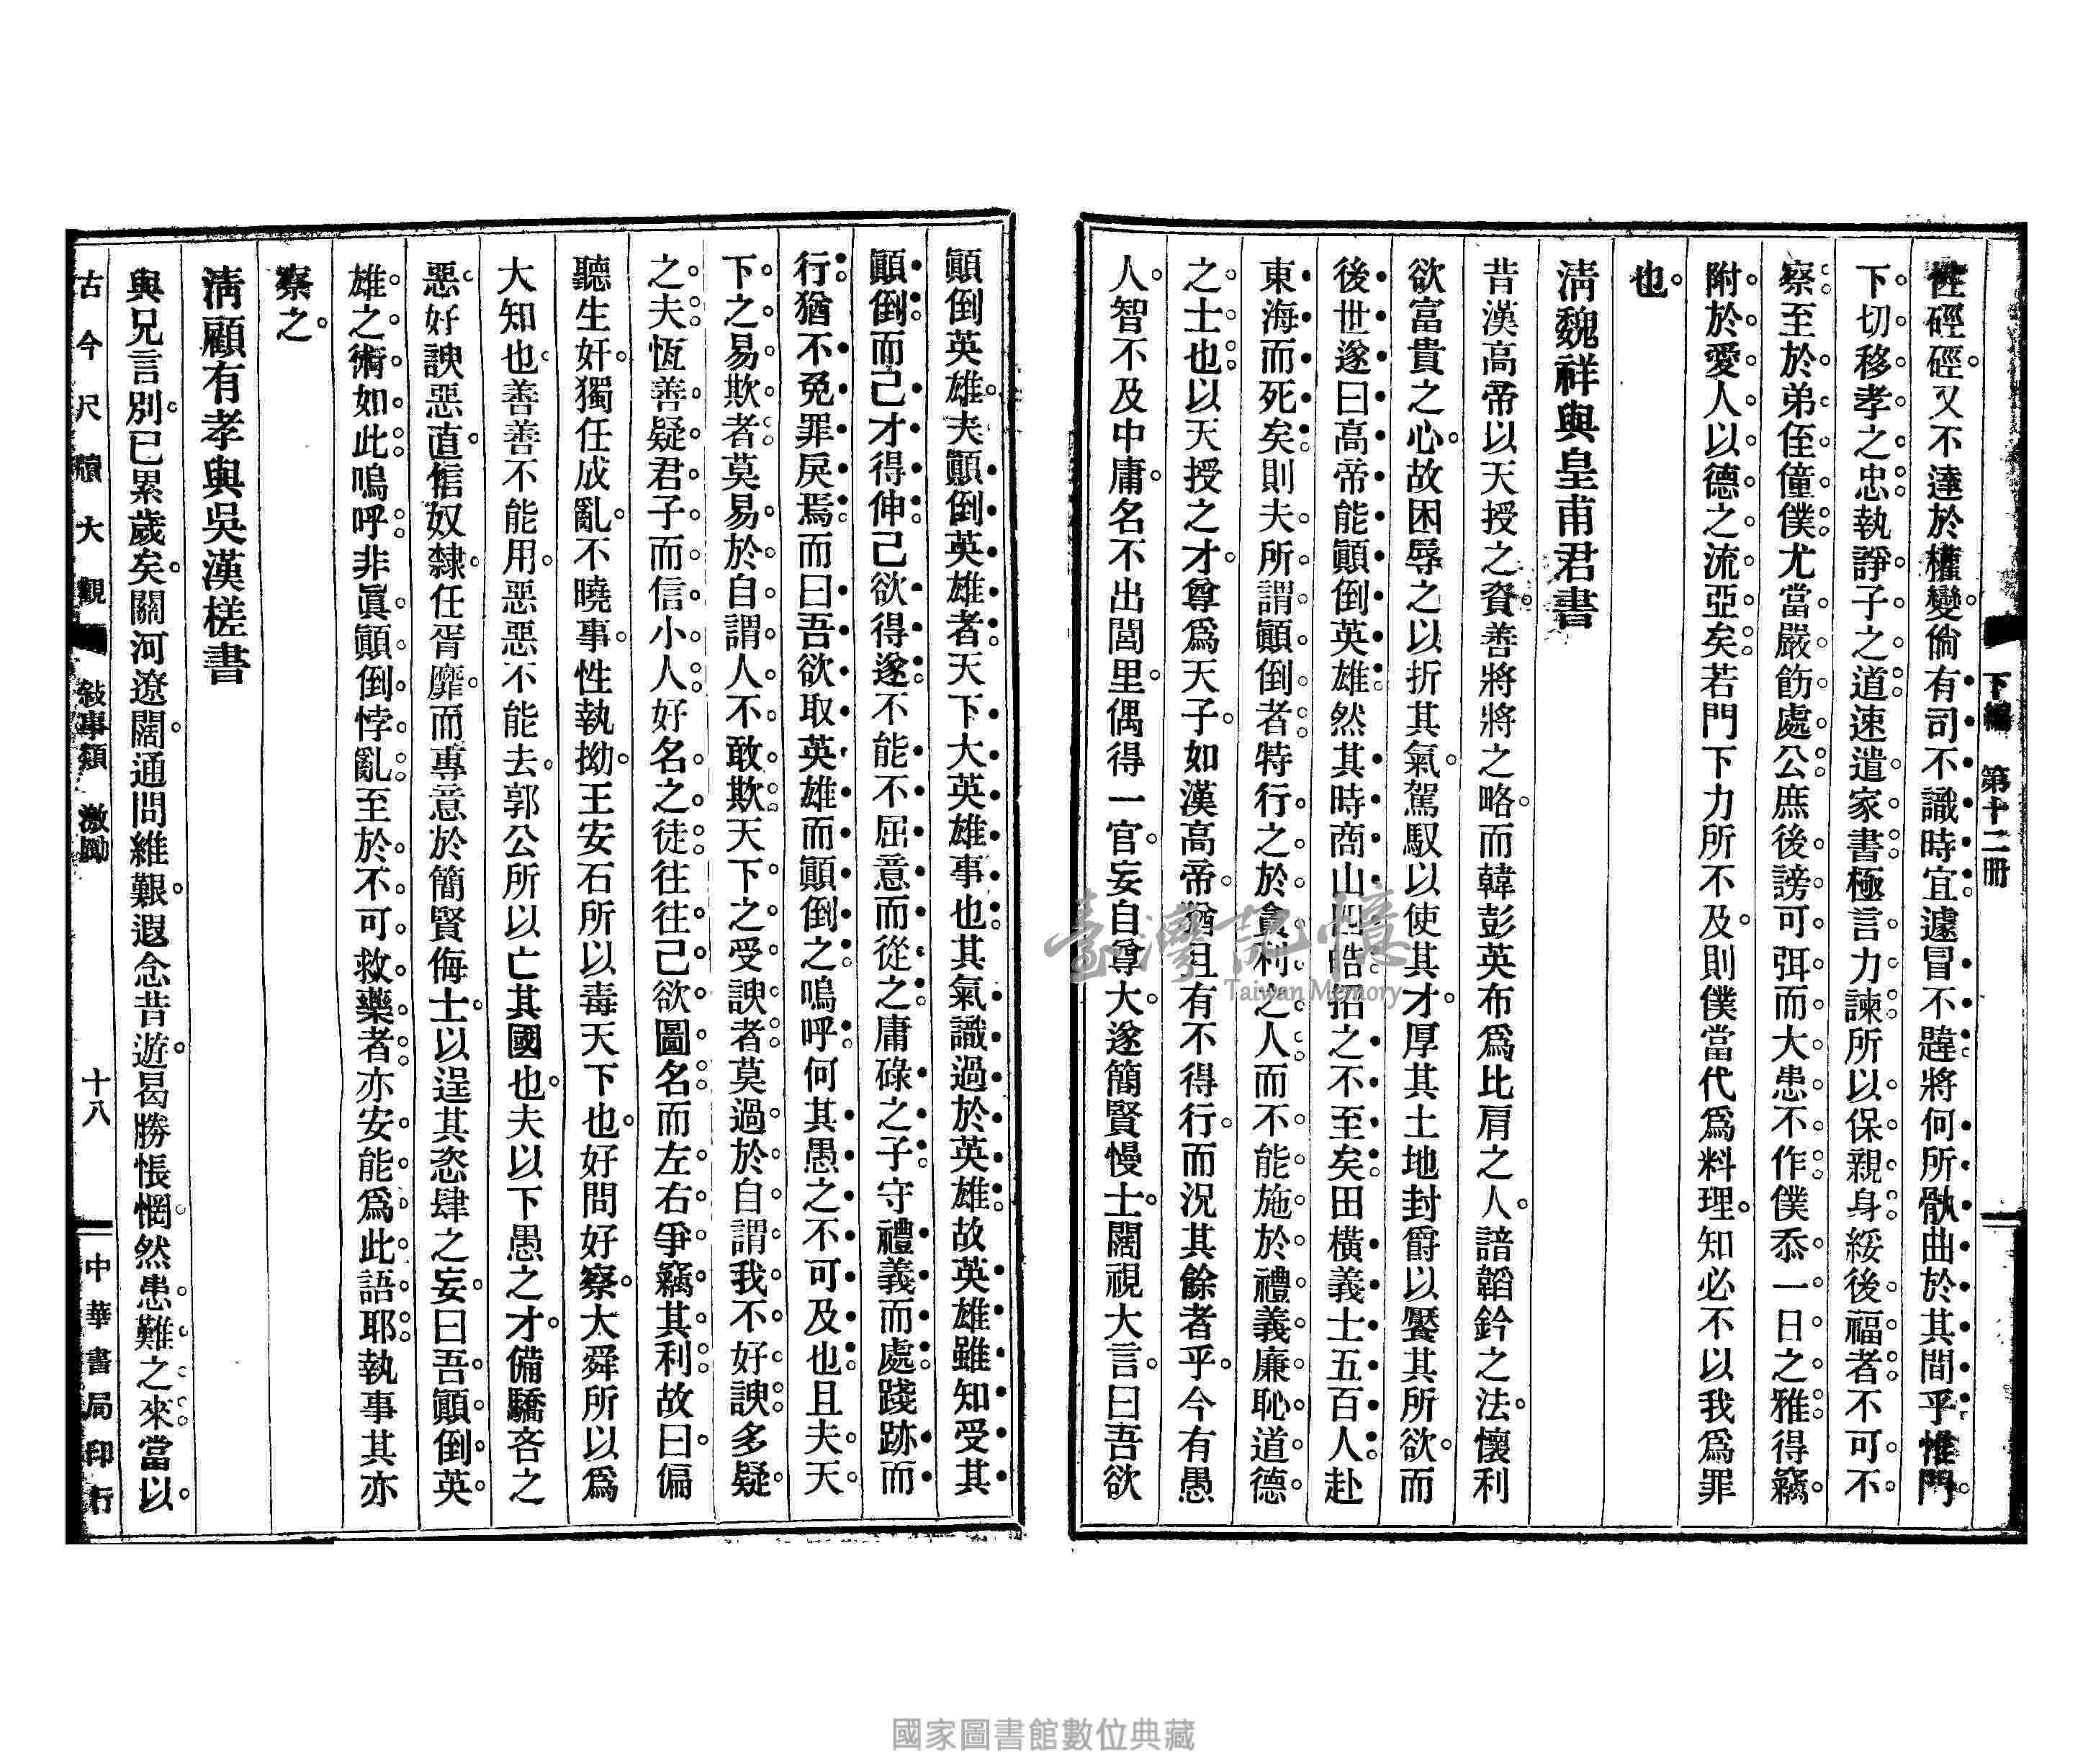 下編　第十二冊
性硜硜又不達於權變倘有司不識時宜遽冒不韙將何所骩曲於其間乎惟門
下切移孝之忠執諍子之道速遣家書極言力諫所以保親身綏後福者不可不
察至於弟侄僮僕尤當嚴飭處公庶後謗可弭而大患不作僕忝一日之雅得竊
附於愛人以德之流亞矣若門下力所不及則僕當代爲料理知必不以我爲罪
也
清魏祥與皇甫君書
昔漢高帝以天授之資善將將之略而韓彭英布爲比肩之人諳韜鈐之法懷利
欲富貴之心故困辱之以折其氣駕馭以使其才厚其土地封爵以饜其所欲而
後世遂曰高帝能顚倒英雄然其時商山四皓招之不至矣田橫義士五百人赴
東海而死矣則夫所謂顚倒者特行之於貪利之人而不能施於禮義廉恥道德
之士也以天授之才尊爲天子如漢高帝猶且有不得行而況其餘者乎今有愚
人智不及中庸名不出閭里偶得一官妄自尊大遂簡賢慢士闊視大言曰吾欲
顚倒英雄夫顚倒英雄者天下大英雄事也其氣識過於英雄故英雄雖知受其
顚倒而己才得伸己欲得遂不能不屈意而從之庸碌之子守禮義而處踐跡而
行猶不免罪戾焉而曰吾欲取英雄而顚倒之嗚呼何其愚之不可及也且夫天
下之易欺者莫易於自謂人不敢欺天下之受諛者莫過於自謂我不好諛多疑
之夫恆善疑君子而信小人好名之徒往往己欲圖名而左右爭竊其利故曰偏
聽生奸獨任成亂不曉事性執拗王安石所以毒天下也好問好察大舜所以爲
大知也善善不能用惡惡不能去郭公所以亡其國也夫以下愚之才備驕吝之
惡好諛惡直信奴隸任胥靡而專意於簡賢侮士以逞其恣肆之妄曰吾顚倒英
雄之術如此嗚呼非眞顚倒悖亂至於不可救藥者亦安能爲此語耶執事其亦
察之
清顧有孝與吳漢槎書
與兄言別已累歲矣關河遼闊通問維艱遐念昔遊曷勝悵惘然患難之來當以
古今尺牘大觀　敍事類　激勵　十八　中華書局印行
臺灣記憶
Taiwan Memory
國家圖書館數位典藏